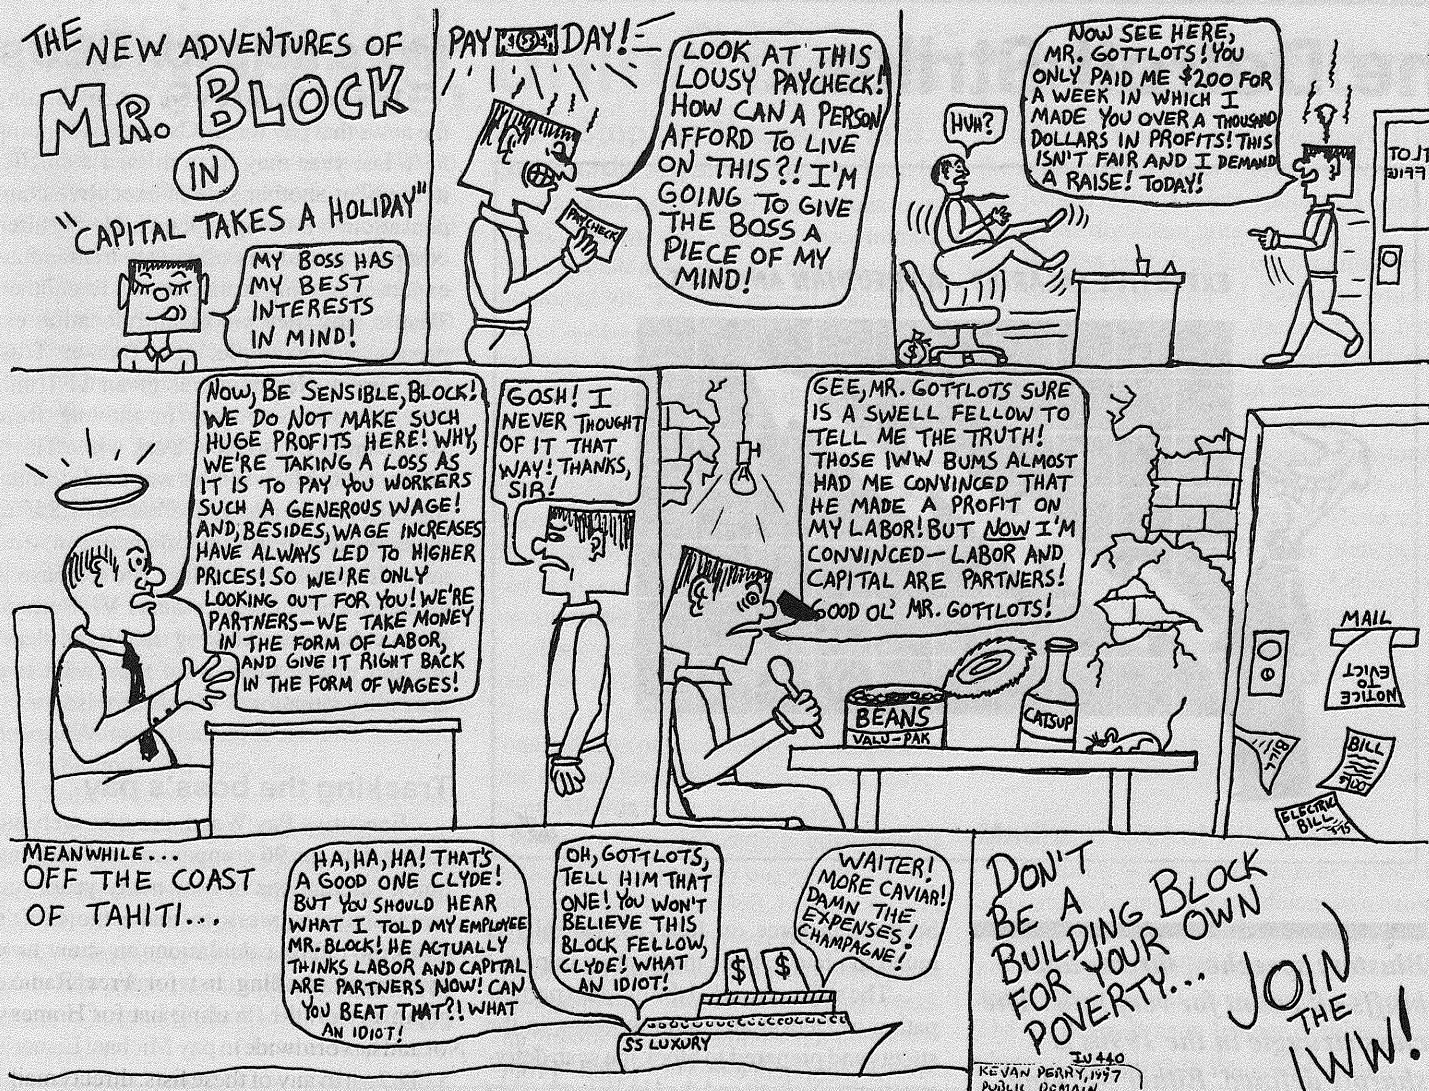 THE
NEW ADVENTURES OF
MR. BLOCK
IN
"CAPITAL TAKES A HOLIDAY"
MY BOSS HAS
MY BEST
INTERESTS
IN MIND!
PAY DAY!
LOOK AT THIS
LOUSY PAYCHECK!
HOW CAN A PERSON
AFFORD TO LIVE
ON THIS?! I'M
GOING TO GIVE
THE BOSS A
PIECE OF MY
MIND!
PAYCHECK
HUH?
NOW SEE HERE,
MR. GOTTLOTS! YOU
ONLY PAID ME $200 FOR
A WEEK IN WHICH I
MADE YOU OVER A THOUSAND
DOLLARS IN PROFITS! THIS
ISN'T FAIR AND I DEMAND
A RAISE! TODAY!
$
NOW, BE SENSIBLE, BLOCK!
WE DO NOT MAKE SUCH
HUGE PROFITS HERE! WHY,
WE'RE TAKING A LOSS AS
IT IS TO PAY YOU WORKERS
SUCH A GENEROUS WAGE!
AND, BESIDES, WAGE INCREASES
HAVE ALWAYS LED TO HIGHER
PRICES! SO WE'RE ONLY
LOOKING OUT FOR YOU! WE'RE
PARTNERS—WE TAKE MONEY
IN THE FORM OF LABOR,
AND GIVE IT RIGHT BACK
IN THE FORM OF WAGES!
GOSH! I
NEVER THOUGHT
OF IT THAT
WAY! THANKS,
SIR!
GEE, MR. GOTTLOTS SURE
IS A SWELL FELLOW TO
TELL ME THE TRUTH!
THOSE IWW BUMS ALMOST
HAD ME CONVINCED THAT
HE MADE A PROFIT ON
MY LABOR! BUT NOW I'M
CONVINCED—LABOR AND
CAPITAL ARE PARTNERS!
GOOD OL' MR. GOTTLOTS!
BEANS
VALU-PAK
CATSUP
MAIL
NOTICE
TO
EVICT
BILL
BILL
ELECTRIC
BILL
MEANWHILE...
OFF THE COAST
OF TAHITI...
HA, HA, HA! THAT'S
A GOOD ONE CLYDE!
BUT YOU SHOULD HEAR
WHAT I TOLD MY EMPLOYEE
MR. BLOCK! HE ACTUALLY
THINKS LABOR AND CAPITAL
ARE PARTNERS NOW! CAN
YOU BEAT THAT?! WHAT
AN IDIOT!
OH, GOTTLOTS,
TELL HIM THAT
ONE! YOU WON'T
BELIEVE THIS
BLOCK FELLOW,
CLYDE! WHAT
AN IDIOT!
WAITER!
MORE CAVIAR!
DAMN THE
EXPENSES!
CHAMPAGNE!
$ $
SS LUXURY
DON'T
BE A
BUILDING BLOCK
FOR YOUR OWN
POVERTY...
JOIN
THE
IWW!
IU 440
KEVAN PERRY, 1997
PUBLIC DOMAIN